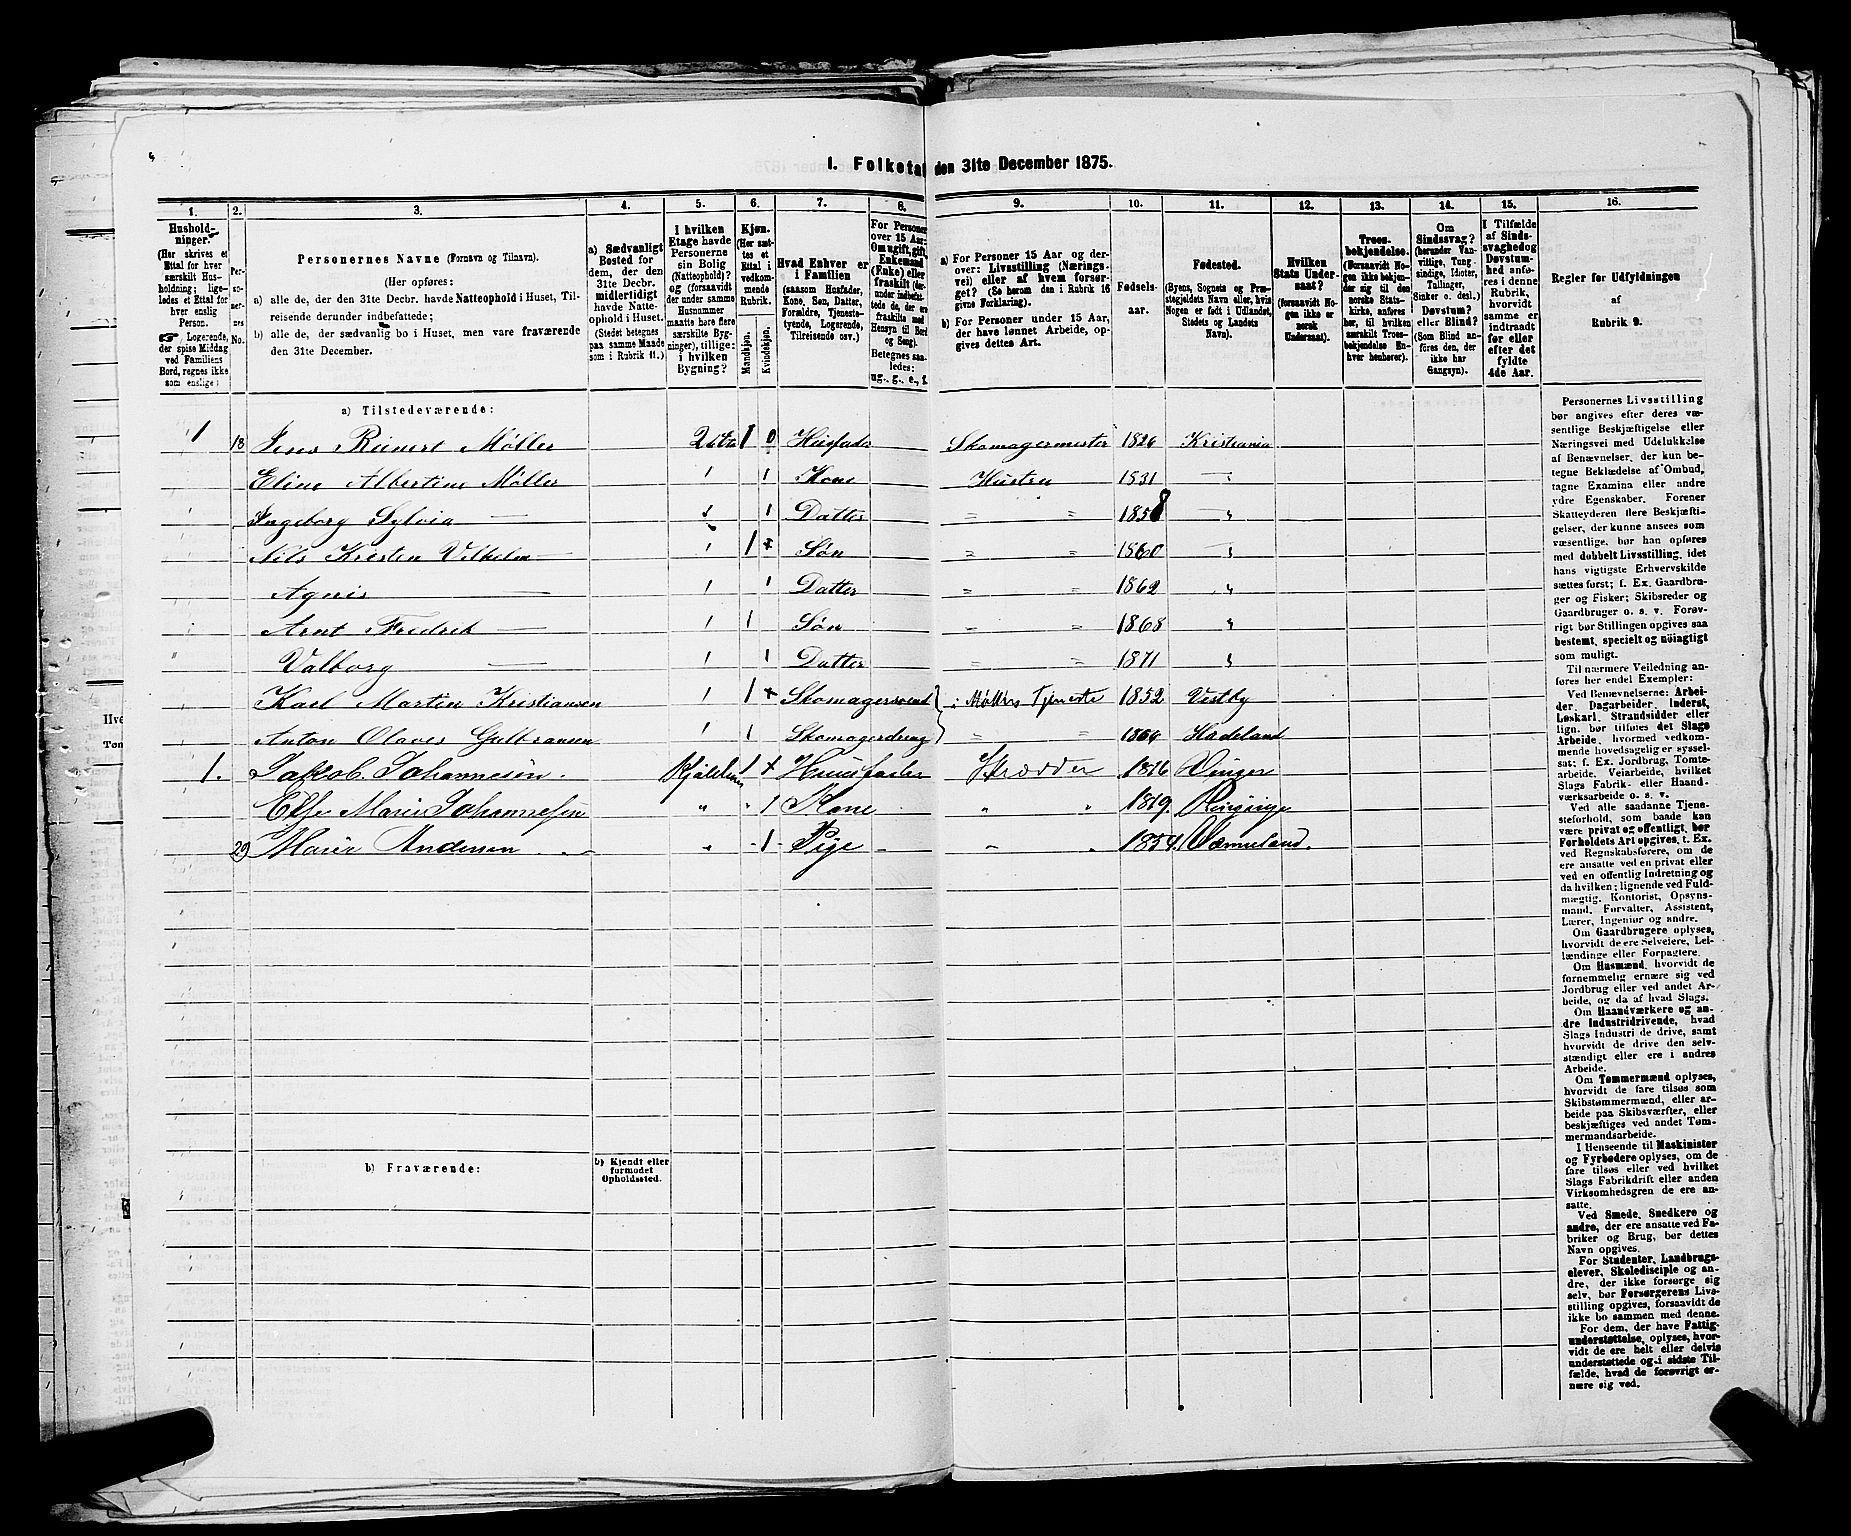 I. Folketal den 31te December 1875.
1. 2. 3. 4. 5. 6. 7. 8. 9. 10. 11. 12. 13. 14. 15. 16.
Husholdninger.
(Her skrives et
Ettal for hver
særskilt Husholdning; ligeledes
et Ettal for
hver enslig
Person.
Logerende,
der spise Middag
ved Familiens
Bord, regnes ikke
som enslige.)
Personernes No.
Personernes Navne (Fornavn og Tilnavn).
(Her opføres:
a) alle de, der den 31te Decbr. havde Natteophold i Huset, Tilreisende derunder indbefattede;
b) alle de, der sædvanlig bo i Huset, men vare fraværende
den 31te December.
a) Sædvanligt
Bosted for
dem, der den
31te Decbr.
midlertidigt
havde Natteophold i Huset.
(Stedet betegnes
paa samme Maade
som i Rubrik 11.)
I hvilken
Etage havde
Personerne
sin Bolig
(Natteophold)?
og (forsaavidt
der under samme
Husnummer
maatte høre flere
særskilte Bygninger), tillige:
i hvilken
Bygning?
Kjøn.
(Her sættes et
Ettal i
vedkommende
Rubrik.
Mandkjøn.
Kvindekjøn.
Hvad Enhver er
i Familien
(saasom Husfader,
Kone, Søn, Datter,
Forældre, Tjenestetyende, Logerende,
Tilreisende osv.)
For Personer
over 15 Aar:
Om ugift, gift,
Enkemand
(Enke) eller
fraskilt
Betegnes saaledes:
ug., g., e., f.
a) For Personer 15 Aar og derover: Livsstilling (Næringsvei) eller af hvem forsørget? (Se herom den i Rubrik 16
givne Forklaring).
b) For Personer under 15 Aar,
der have lønnet Arbeide, opgives dettes Art.
Fødselsaar.
Fødested.
(Byens, Sognets og Præstegjeldets Navn eller, hvis
Nogen er født i Udlandet,
Stedets og Landets
Navn).
Hvilken
Stats Undersaat?
(forsaavidt Nogen ikke er
norsk
Undersaat).
Troesbekjendelse.
(Forsaavidt Nogen ikke bekjender sig til den
norske Statskirke, anføres
her, til hvilken
særskilt Troesbekjendelse Enhver henhører).
Om
Sindssvag?
(herunder Vanvittige, Tungsindige, Idioter,
Tullinger,
Sinker o. desl.)
Døvstum?
eller Blind?
(Som Blind anføres den, der
ikke har
Gangsyn).
I Tilfælde
af Sindssvaghed og
Døvstumhed anføres i denne
Rubrik,
hvorvidt
samme er
indtraadt
før eller
efter det
fyldte
4de Aar.
Regler for Udfyldningen
af
Rubrik 9.
a) Tilstedeværende:
1 18 Jens Reinert Møller 2 Etg 1 0 Husfader Skomagermester 1826 Kristiania
Eline Albertine Møller 1 Kone Hustru 1831 "
Ingeborg Sylvia — 1 Datter " " 1858 "
Nils Kristen Vilhelm — 1 Søn " " 1860 "
Agnes — 1 Datter " " 1862 "
Arnt Fredrik — 1 Søn " " 1868 "
Valborg — 1 Datter " " 1871 "
Karl Martin Kristiansen 1 Skomagersvend i Møllers Tjeneste 1852 Vestby
Anton Olaves Gulbransen 1 Skomagerdreng " " 1864 Hadeland
1. Jakob Johannesen. Kjelderen 1 Huusfader Skrædder 1816 Vinger
Else Marie Johannesen " 1 Kone " " 1819. Ringrige
29 Marie Andersen " 1 Pige " " 1854. Værmeland.
b) Fraværende:
b) Kjendt eller
formodet
Opholdssted.
Personernes Livsstilling
bør angives efter deres væsentlige Beskjæftigelse eller
Næringsvei med Udelukkelse
af Benævnelser, der kun betegne Beklædelse af Ombud,
tagne Examina eller andre
ydre Egenskaber. Forener
Skatteyderen flere Beskjæftigelser, der kunne ansees som
væsentlige, bør han opføres
med dobbelt Livsstilling, idet
hans vigtigste Erhvervskilde
sættes først; f. Ex. Gaardbruger og Fisker; Skibsreder og
Gaardbruger o. s. v. Forøvrigt bør Stillingen opgives saa
bestemt, specielt og nöiagtigt
som muligt.
Til nærmere Veiledning anføres her endel Exempler:
Ved Benævnelserne: Arbeider, Dagarbeider, Inderst,
Løskarl, Strandsidder eller
lign. bør tilføies det Slags
Arbeide, hvormed vedkommende hovedsagelig er sysselsat; f. Ex. Jordbrug, Tomtearbeide, Veiarbeide, hvilket
Slags Fabrik- eller Haandværksarbeide o. s. v.
Ved alle saadanne Tjenesteforhold, som baade kan
være privat og offentligt, bør
Forholdets Art opgives, t. Ex.
ved Regnskabsførere, om de
ere ansatte ved en privat eller
ved en offentlig Indretning og
da hvilken; lignende ved Fuldmægtig, Kontorist, Opsynsmand, Forvalter, Assistent,
Lærer, Ingeniør og andre.
Om Gaardbrugere oplyses,
hvorvidt de ere Selveiere, Leilændinge eller Forpagtere.
Om Husmænd, hvorvidt de
fornemmelig ernære sig ved
Jordbrug eller ved andet Arbeide, og da af hvad Slags.
Om Haandværkere og andre Industridrivende, hvad
Slags Industri de drive, samt
hvorvidt de drive den selvstændigt eller ere i andres
Arbeide.
Om Tømmermænd oplyses,
hvorvidt de fare tilsøs som
Skibstømmermænd, eller arbeide paa Skibsværfter, eller
beskjæftiges ved andet Tømmermandsarbeide.
I Henseende til Maskinister
og Fyrbødere oplyses, om de
fare tilsøs eller ved hvilket
Slags Fabrikdrift eller anden
Virksomhedsgren de ere ansatte.
Ved Smede, Snedkere og
andre, der ere ansatte ved Fabriker og Brug, bør dettes
Navn opgives.
For Studenter, Landbrugselever, Skoledisciple og andre, der ikke forsørge sig
selv, bør Forsørgerens Livsstilling opgives, forsaavidt de
ikke bo sammen med denne.
For dem, der have Fattigunderstøttelse, oplyses, hvorvidt de ere helt eller delvis
understøttede og i sidste Tilfælde, hvad de forøvrigt ernære sig ved.